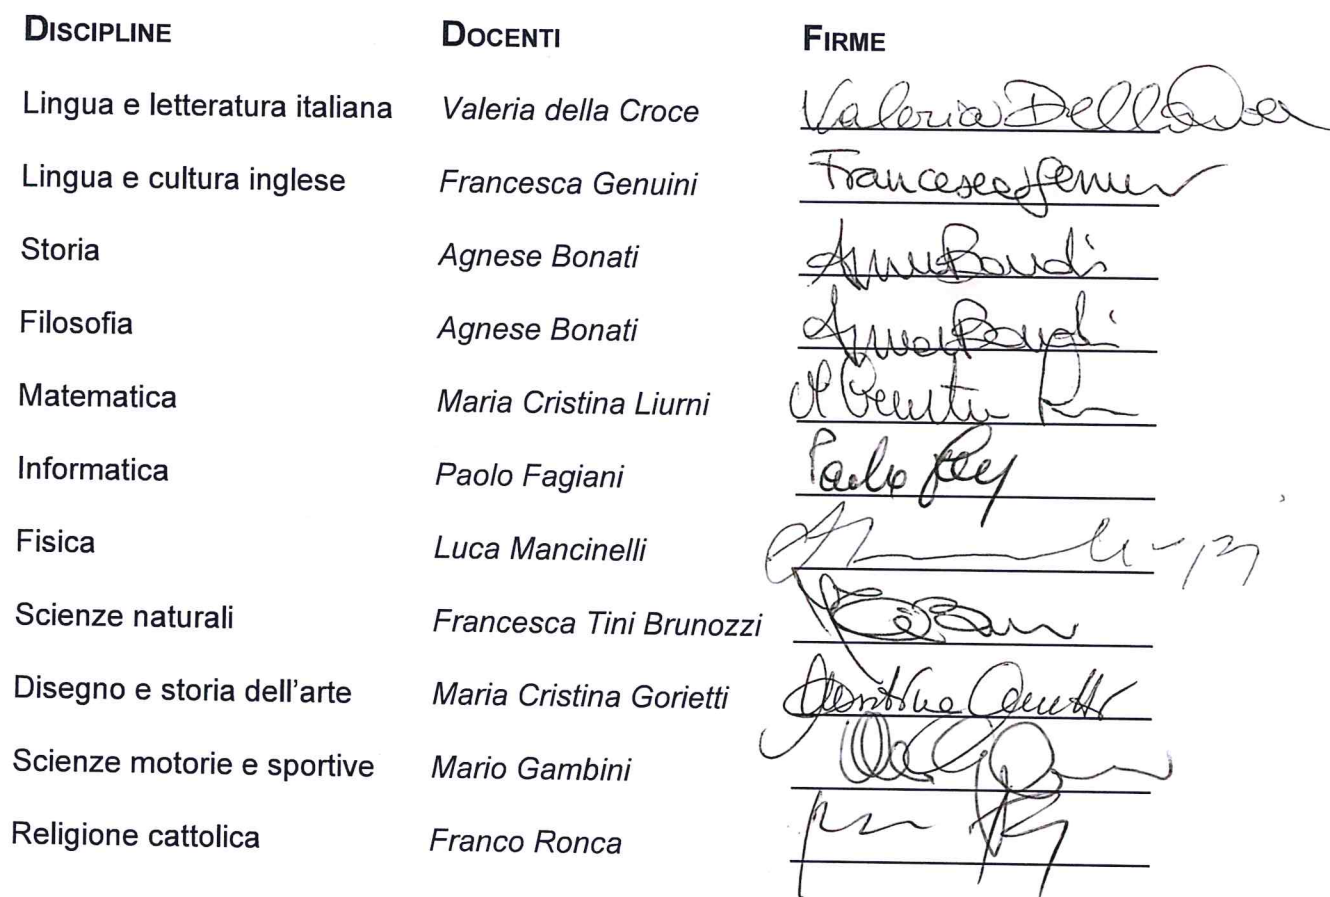 DISCIPLINE DOCENTI FIRME
Lingua e letteratura italiana Valeria della Croce Valeria Della Croce
Lingua e cultura inglese Francesca Genuini Francesca Genuini
Storia Agnese Bonati
Filosofia Agnese Bonati
Matematica Maria Cristina Liurni
Informatica Paolo Fagiani Paolo
Fisica Luca Mancinelli
Scienze naturali Francesca Tini Brunozzi
Disegno e storia dell'arte Maria Cristina Gorietti
Scienze motorie e sportive Mario Gambini
Religione cattolica Franco Ronca